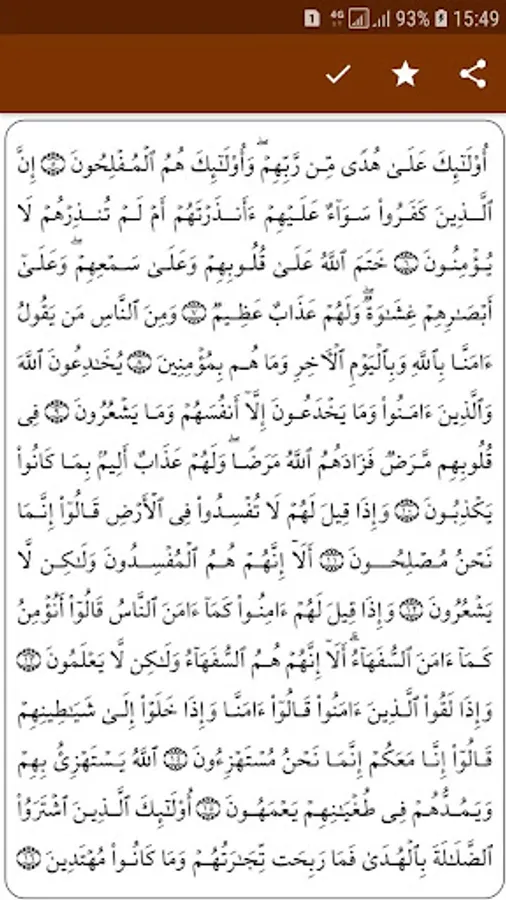 1 4G 93% 15:49
أُو۟لَٰٓئِكَ عَلَىٰ هُدًى مِّن رَّبِّهِمْ ۖ وَأُو۟لَٰٓئِكَ هُمُ ٱلْمُفْلِحُونَ ۝٥ إِنَّ
ٱلَّذِينَ كَفَرُوا۟ سَوَآءٌ عَلَيْهِمْ ءَأَنذَرْتَهُمْ أَمْ لَمْ تُنذِرْهُمْ لَا
يُؤْمِنُونَ ۝٦ خَتَمَ ٱللَّهُ عَلَىٰ قُلُوبِهِمْ وَعَلَىٰ سَمْعِهِمْ ۖ وَعَلَىٰٓ
أَبْصَٰرِهِمْ غِشَٰوَةٌ ۖ وَلَهُمْ عَذَابٌ عَظِيمٌ ۝٧ وَمِنَ ٱلنَّاسِ مَن يَقُولُ
ءَامَنَّا بِٱللَّهِ وَبِٱلْيَوْمِ ٱلْءَاخِرِ وَمَا هُم بِمُؤْمِنِينَ ۝٨ يُخَٰدِعُونَ ٱللَّهَ
وَٱلَّذِينَ ءَامَنُوا۟ وَمَا يَخْدَعُونَ إِلَّآ أَنفُسَهُمْ وَمَا يَشْعُرُونَ ۝٩ فِى
قُلُوبِهِم مَّرَضٌ فَزَادَهُمُ ٱللَّهُ مَرَضًا ۖ وَلَهُمْ عَذَابٌ أَلِيمٌۢ بِمَا كَانُوا۟
يَكْذِبُونَ ۝١٠ وَإِذَا قِيلَ لَهُمْ لَا تُفْسِدُوا۟ فِى ٱلْأَرْضِ قَالُوٓا۟ إِنَّمَا
نَحْنُ مُصْلِحُونَ ۝١١ أَلَآ إِنَّهُمْ هُمُ ٱلْمُفْسِدُونَ وَلَٰكِن لَّا
يَشْعُرُونَ ۝١٢ وَإِذَا قِيلَ لَهُمْ ءَامِنُوا۟ كَمَآ ءَامَنَ ٱلنَّاسُ قَالُوٓا۟ أَنُؤْمِنُ
كَمَآ ءَامَنَ ٱلسُّفَهَآءُ ۗ أَلَآ إِنَّهُمْ هُمُ ٱلسُّفَهَآءُ وَلَٰكِن لَّا يَعْلَمُونَ ۝١٣
وَإِذَا لَقُوا۟ ٱلَّذِينَ ءَامَنُوا۟ قَالُوٓا۟ ءَامَنَّا وَإِذَا خَلَوْا۟ إِلَىٰ شَيَٰطِينِهِمْ
قَالُوٓا۟ إِنَّا مَعَكُمْ إِنَّمَا نَحْنُ مُسْتَهْزِءُونَ ۝١٤ ٱللَّهُ يَسْتَهْزِئُ بِهِمْ
وَيَمُدُّهُمْ فِى طُغْيَٰنِهِمْ يَعْمَهُونَ ۝١٥ أُو۟لَٰٓئِكَ ٱلَّذِينَ ٱشْتَرَوُا۟
ٱلضَّلَٰلَةَ بِٱلْهُدَىٰ فَمَا رَبِحَت تِّجَٰرَتُهُمْ وَمَا كَانُوا۟ مُهْتَدِينَ ۝١٦